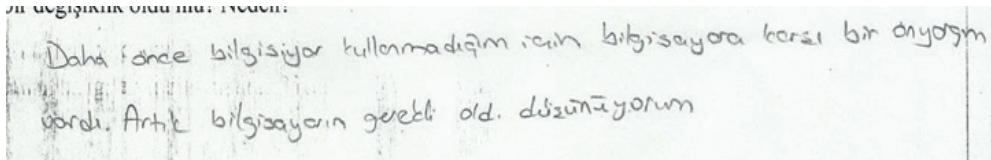 bir değişiklik oldu mu? Neden?
Daha önce bilgisiyar kullanmadığım için bilgisayara karşı bir önyargım
vardı. Artık bilgisayarın gerekli old. düşünüyorum